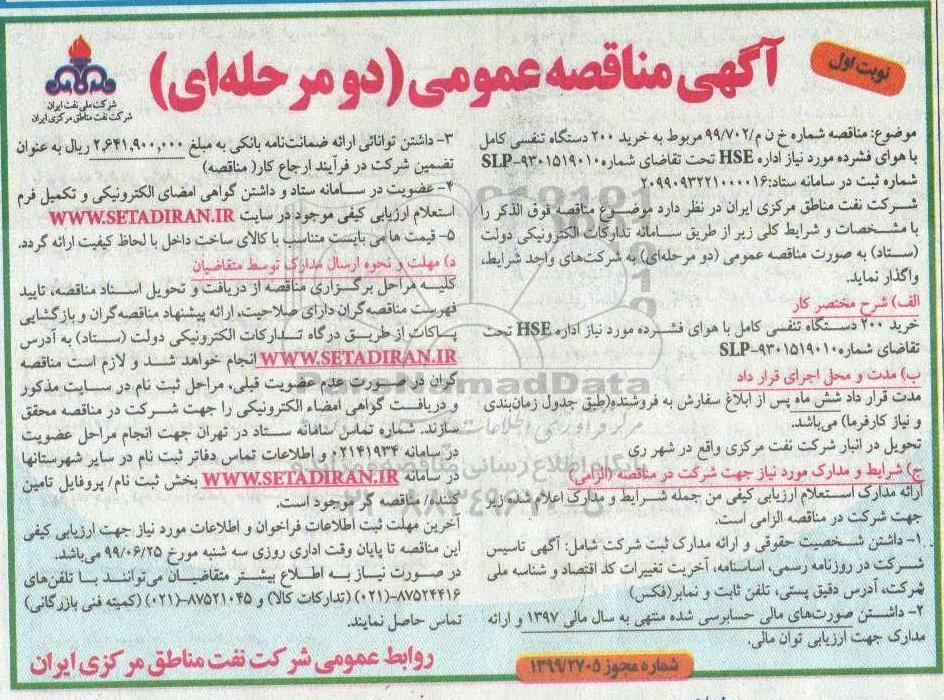 نوبت اول
آگهی مناقصه عمومی (دو مرحله‌ای)
شرکت ملی نفت ایران
شرکت نفت مناطق مرکزی ایران
موضوع: مناقصه شماره خ ن م/۹۹/۷۰۲ مربوط به خرید ۲۰۰ دستگاه تنفسی کامل
با هوای فشرده مورد نیاز اداره HSE تحت تقاضای شماره SLP-۹۳۰۱۵۱۹۰۱۰
شماره ثبت در سامانه ستاد: ۲۰۹۹۰۹۳۲۲۱۰۰۰۰۱۶
شرکت نفت مناطق مرکزی ایران در نظر دارد موضوع مناقصه فوق الذکر را
با مشخصات و شرایط کلی زیر از طریق سامانه تدارکات الکترونیکی دولت
(ستاد) به صورت مناقصه عمومی (دو مرحله‌ای) به شرکت‌های واجد شرایط،
واگذار نماید.
الف) شرح مختصر کار
خرید ۲۰۰ دستگاه تنفسی کامل با هوای فشرده مورد نیاز اداره HSE تحت
تقاضای شماره SLP-۹۳۰۱۵۱۹۰۱۰
ب) مدت و محل اجرای قرار داد
مدت قرار داد شش ماه پس از ابلاغ سفارش به فروشنده(طبق جدول زمان‌بندی
و نیاز کارفرما) می‌باشد.
تحویل در انبار شرکت نفت مرکزی واقع در شهر ری
ج) شرایط و مدارک مورد نیاز جهت شرکت در مناقصه (الزامی)
ارائه مدارک استعلام ارزیابی کیفی من جمله شرایط و مدارک اعلام شده زیر
جهت شرکت در مناقصه الزامی است.
۱- داشتن شخصیت حقوقی و ارائه مدارک ثبت شرکت شامل: آگهی تاسیس
شرکت در روزنامه رسمی، اساسنامه، آخریت تغییرات کد اقتصاد و شناسه ملی
شرکت، آدرس دقیق پستی، تلفن ثابت و نمابر(فکس)
۲- داشتن صورت‌های مالی حسابرسی شده منتهی به سال مالی ۱۳۹۷ و ارائه
مدارک جهت ارزیابی توان مالی.
۳- داشتن توانائی ارائه ضمانت‌نامه بانکی به مبلغ ۲,۶۴۱,۹۰۰,۰۰۰ ریال به عنوان
تضمین شرکت در فرآیند ارجاع کار( مناقصه)
۴- عضویت در سامانه ستاد و داشتن گواهی امضای الکترونیکی و تکمیل فرم
استعلام ارزیابی کیفی موجود در سایت WWW.SETADIRAN.IR
۵- قیمت ها می بایست متناسب با کالای ساخت داخل با لحاظ کیفیت ارائه گردد.
د) مهلت و نحوه ارسال مدارک توسط متقاضیان
کلیه مراحل برگزاری مناقصه از دریافت و تحویل اسناد مناقصه، تایید
فهرست مناقصه‌گران دارای صلاحیت، ارائه پیشنهاد مناقصه‌گران و بازگشایی
پاکات از طریق درگاه تدارکات الکترونیکی دولت (ستاد) به آدرس
WWW.SETADIRAN.IR انجام خواهد شد و لازم است مناقصه
گران در صورت عدم عضویت قبلی، مراحل ثبت نام در سایت مذکور
و دریافت گواهی امضاء الکترونیکی را جهت شرکت در مناقصه محقق
سازند. شماره تماس سامانه ستاد در تهران جهت انجام مراحل عضویت
در سامانه ۰۲۱۴۱۹۳۴ و اطلاعات تماس دفاتر ثبت نام در سایر شهرستانها
در سامانه WWW.SETADIRAN.IR بخش ثبت نام/ پروفایل تامین
کننده/ مناقصه گر موجود است.
آخرین مهلت ثبت اطلاعات فراخوان و اطلاعات مورد نیاز جهت ارزیابی کیفی
این مناقصه تا پایان وقت اداری روزی سه شنبه مورخ ۹۹/۰۶/۲۵ می‌باشد.
در صورت نیاز به اطلاع بیشتر متقاضیان می‌توانند با تلفن‌های
۸۷۵۲۴۴۱۶-(۰۲۱) (تدارکات کالا) و ۸۷۵۲۱۰۴۵-(۰۲۱) (کمیته فنی بازرگانی)
تماس حاصل نمایند.
روابط عمومی شرکت نفت مناطق مرکزی ایران
شماره مجوز ۱۳۹۹/۲۷۰۵
ParsNamadData